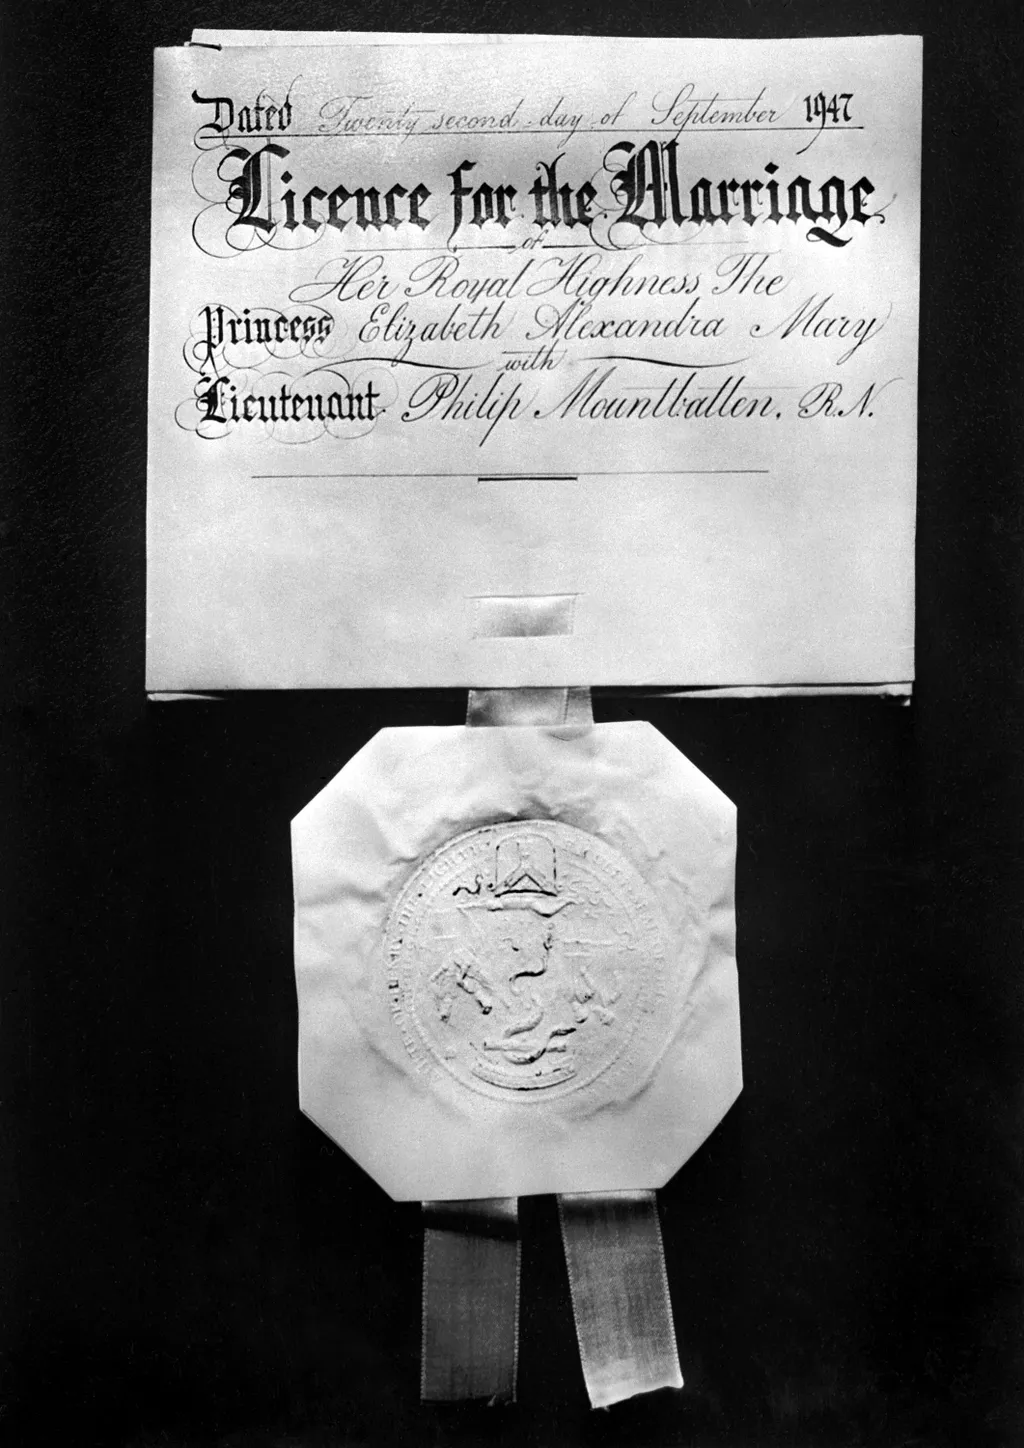 Dated Twenty second day of September 1947
Licence for the Marriage
of
Her Royal Highness The
Princess Elizabeth Alexandra Mary
with
Lieutenant Philip Mountbatten, R.N.